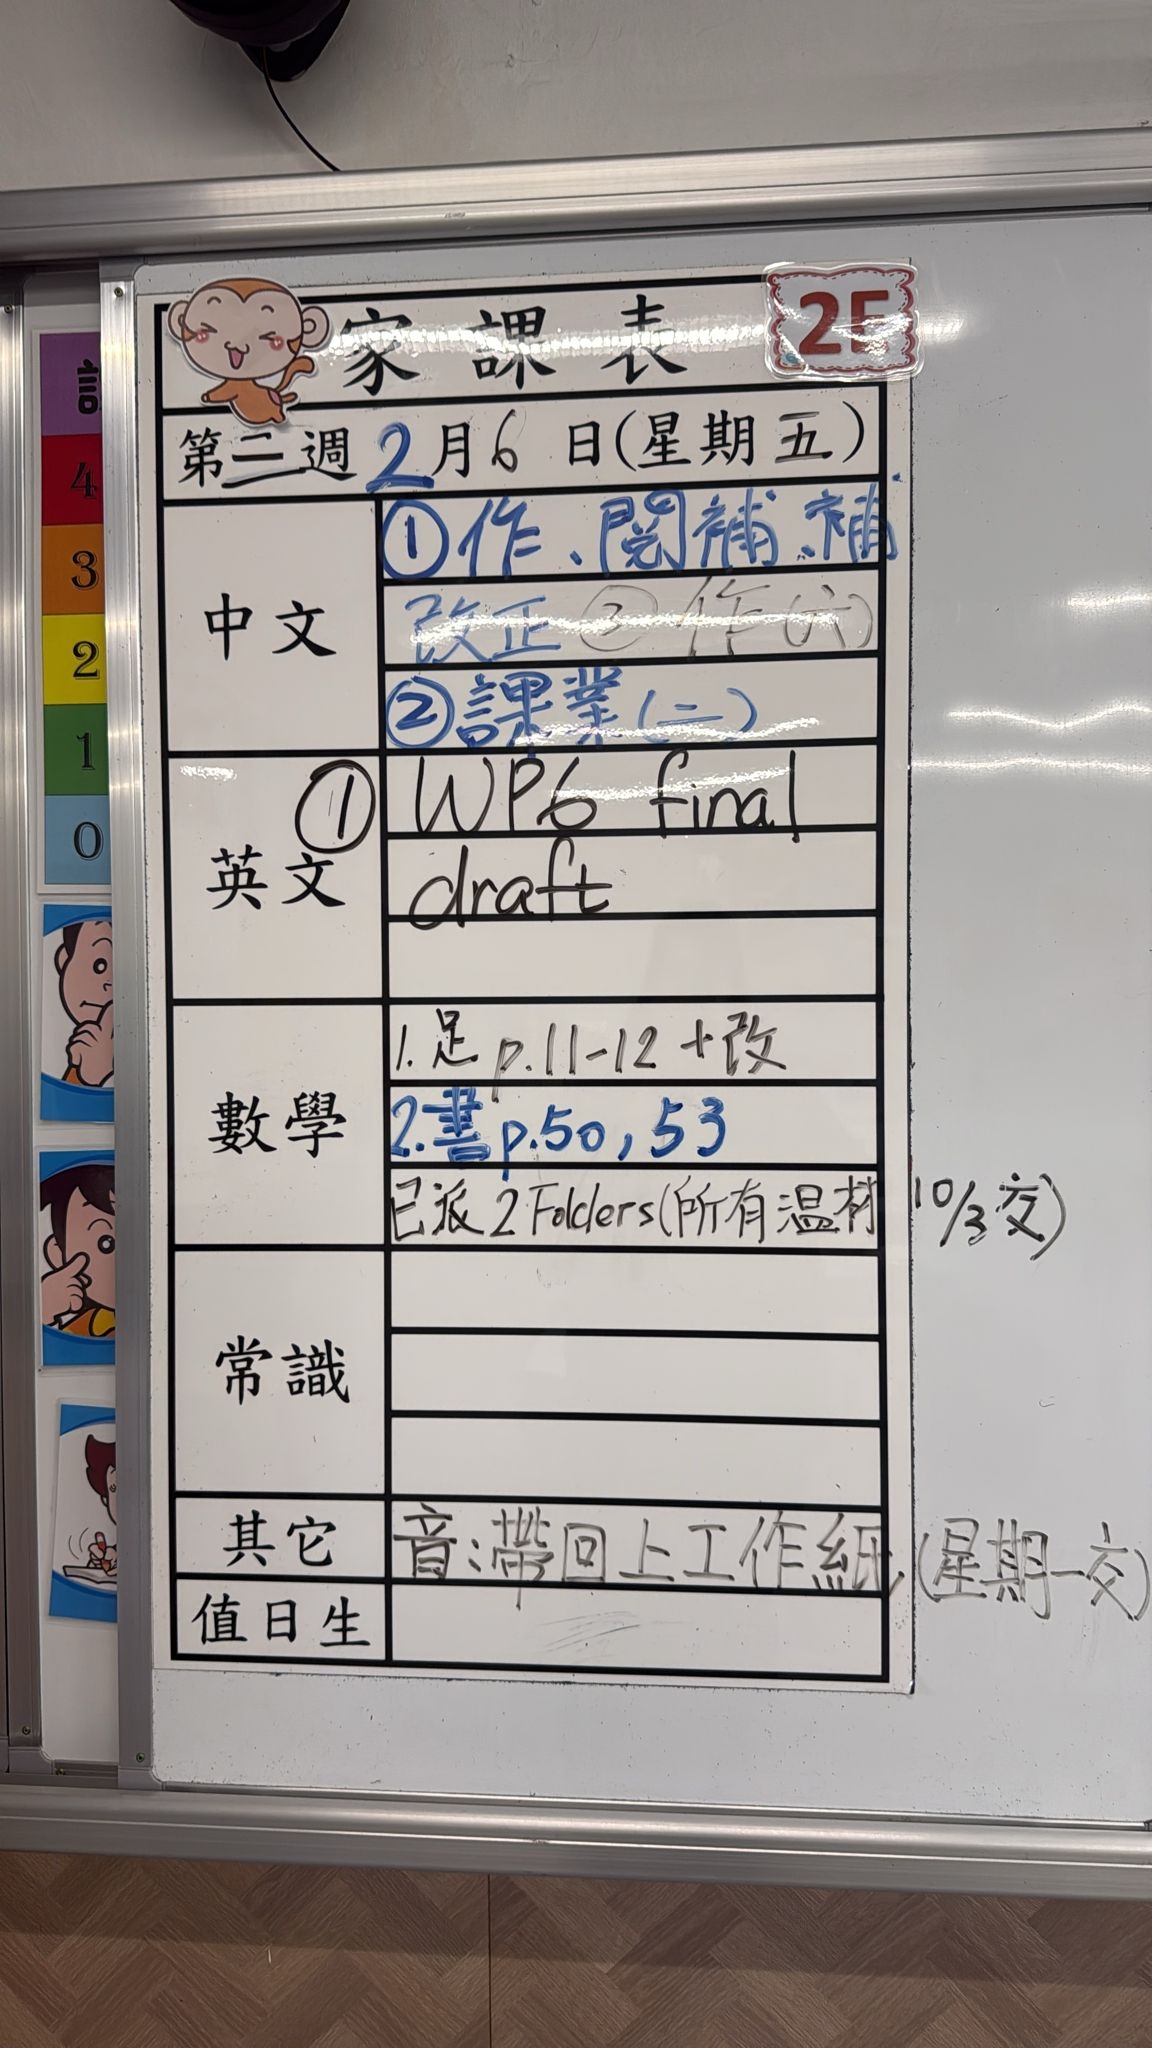 家課表
2F
第二週 2月6日(星期五)
中文
①作、閱補、補
改正 ③作(六)
②課業(二)
英文
① WP6 final
draft
數學
1. 足 p.11-12 + 改
2. 書 p.50, 53
已派 2 Folders(所有溫材 10/3 交)
常識
其它
音:帶回上工作紙(星期一交)
值日生
4
3
2
1
0